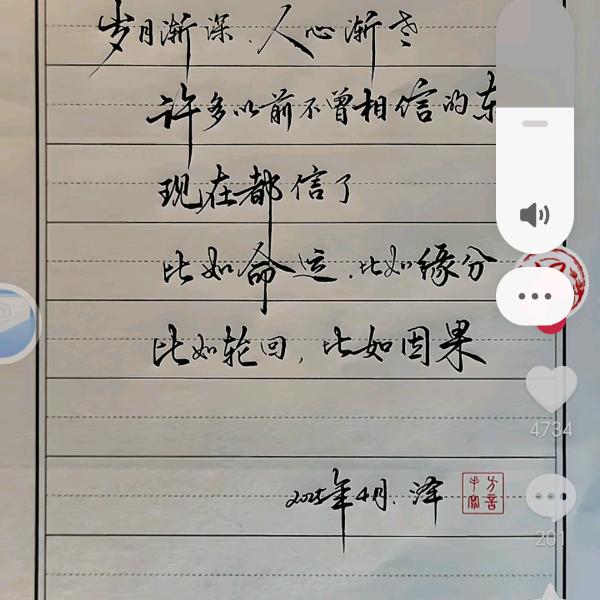 岁月渐深、人心渐老
许多以前不曾相信的东
现在都信了
比如命运、比如缘分
比如轮回，比如因果
2025年4月、泽
4734
201